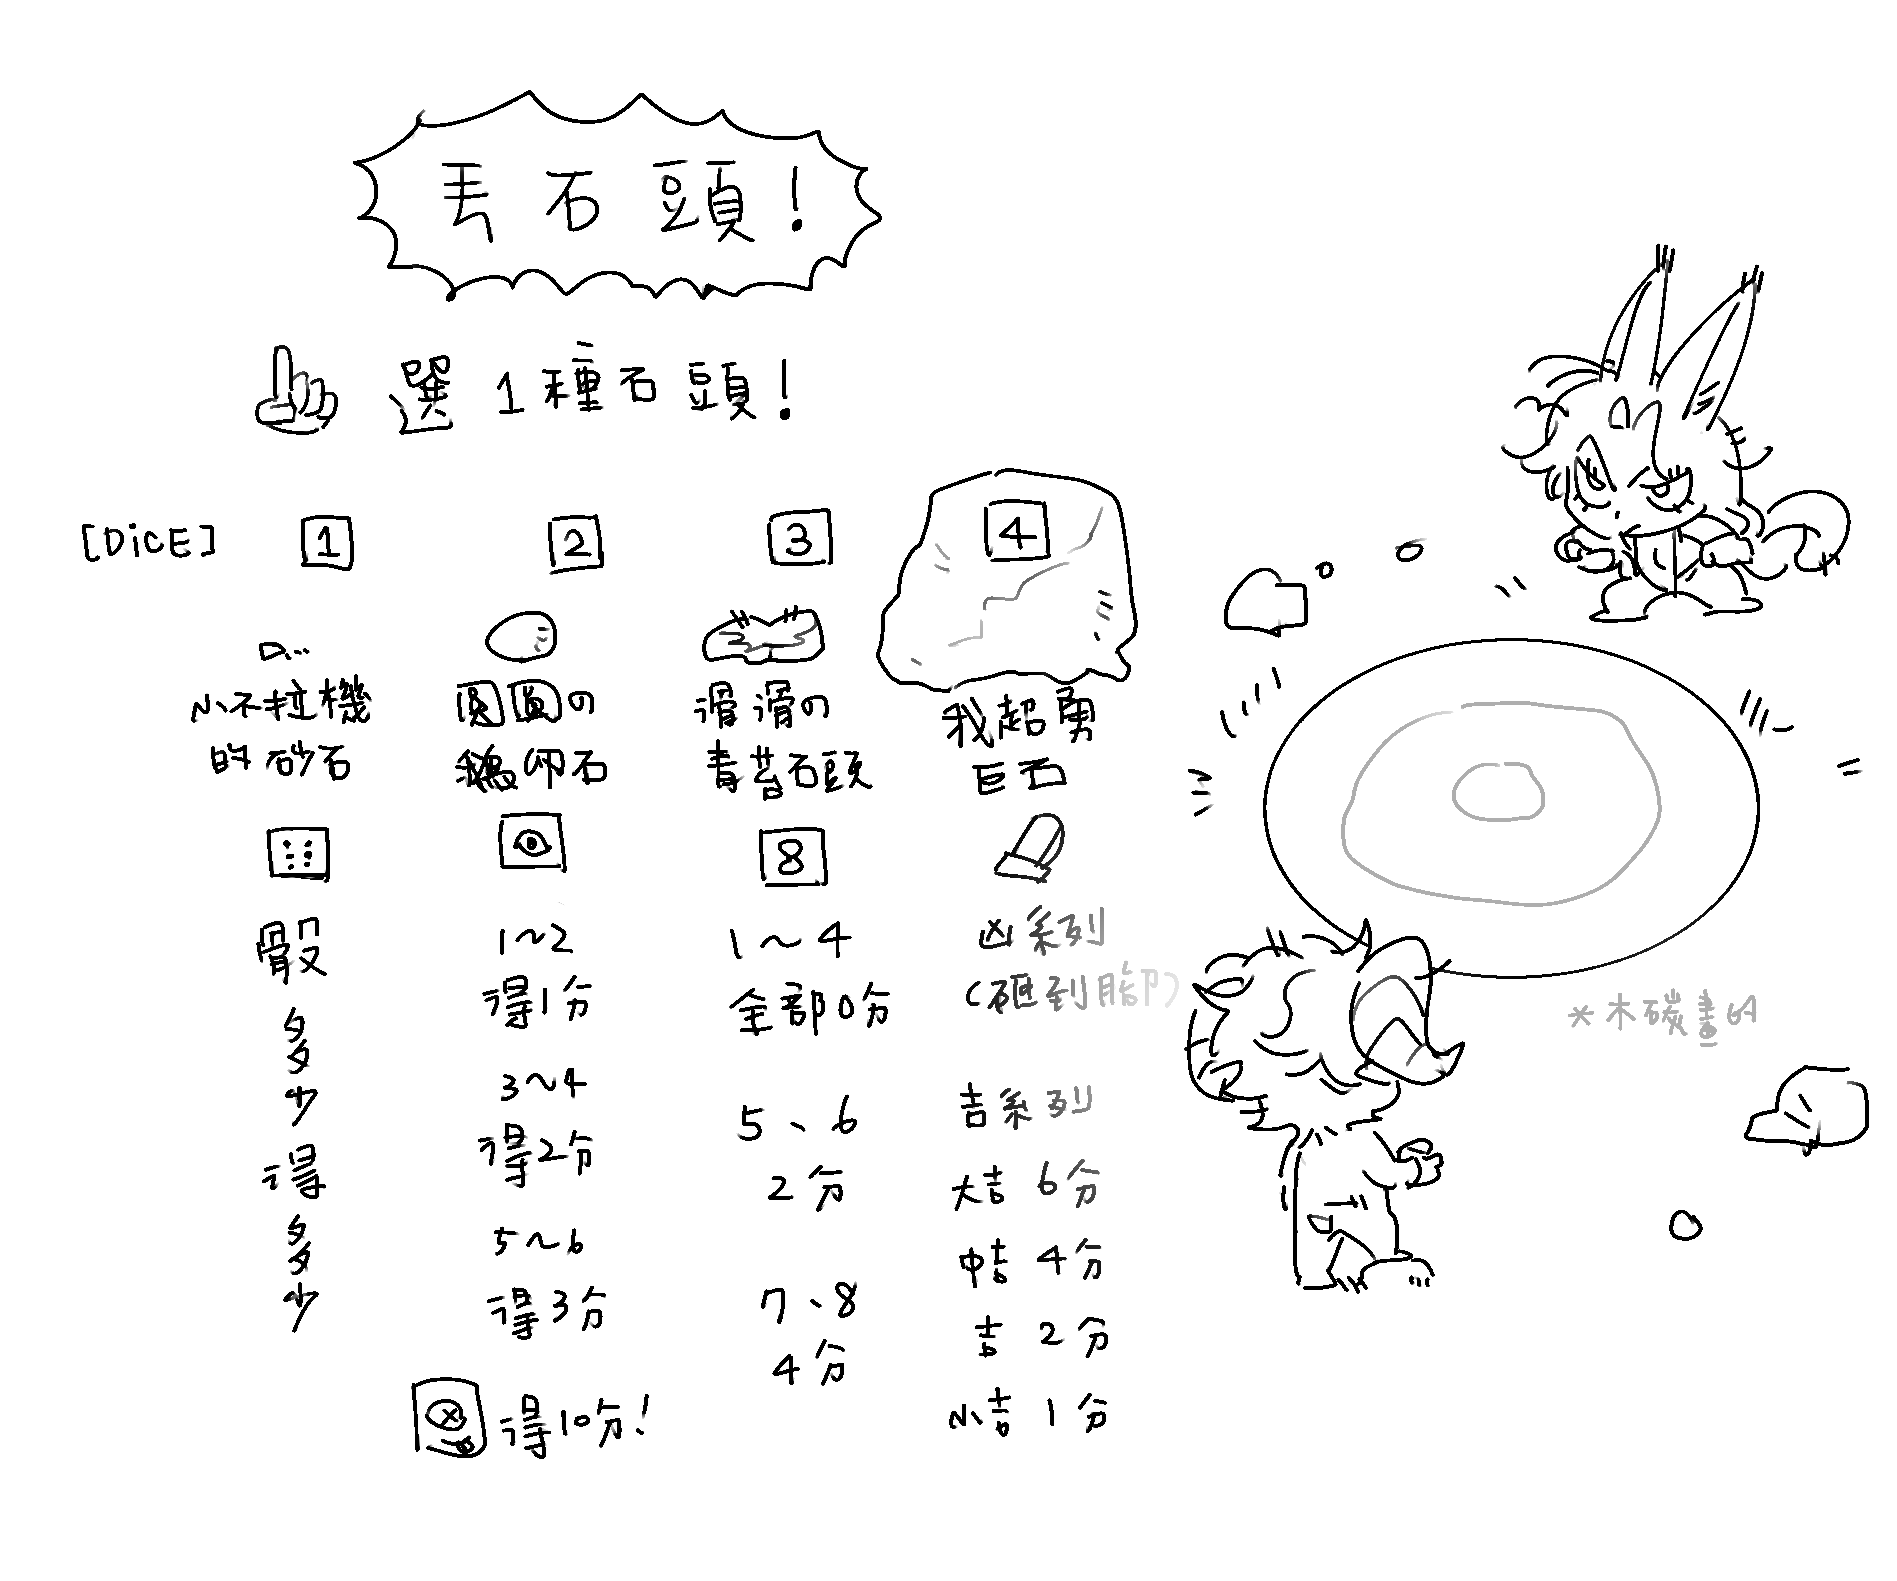 丟石頭!
選1種石頭!
[DiCE] 1 2 3 4
小不拉機
的砂石
圓圓の
鵝卵石
滑滑の
青苔石頭
我超勇
巨石
8
骰
多
少
得
多
少
1~2
得1分
3~4
得2分
5~6
得3分
得10分!
1~4
全部0分
5、6
2分
7、8
4分
凶系列
(砸到腳)
吉系列
大吉 6分
中吉 4分
吉 2分
小吉 1分
*木碳畫的